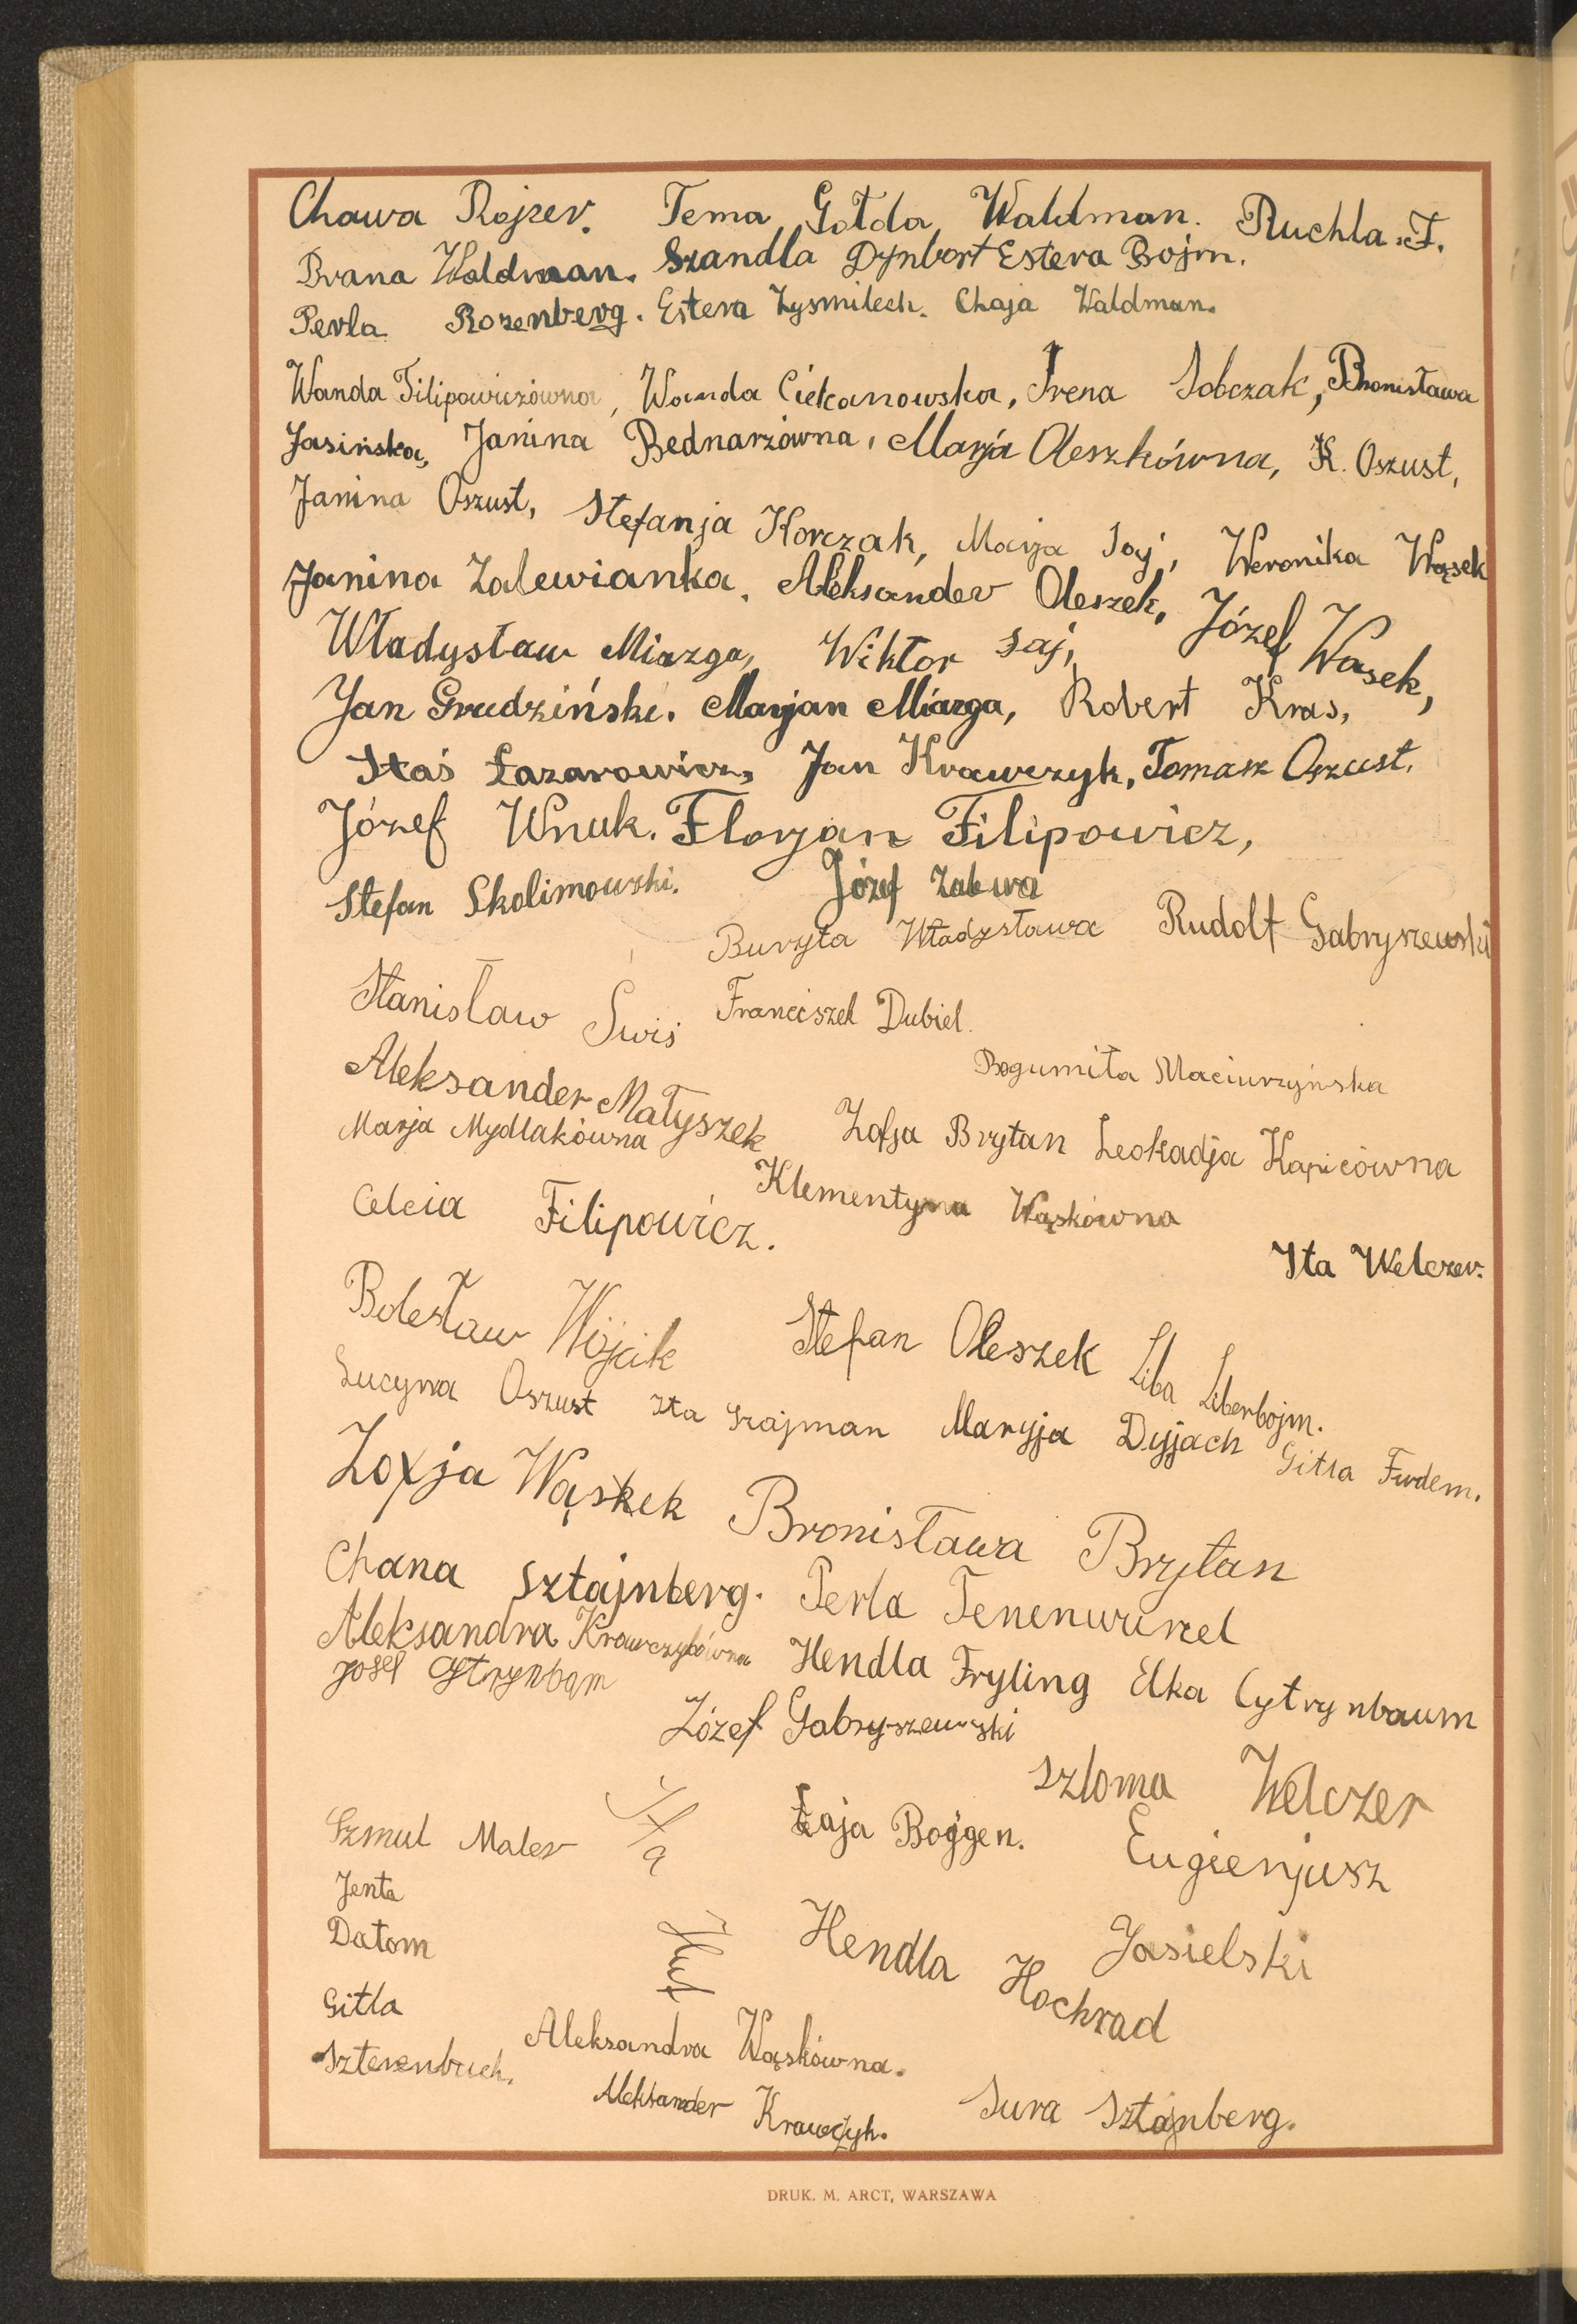 Chawa Rojzer. Tema Gołda Waldman. Ruchla. F.
Brana Waldman. Szandla Dynbort Estera Bojm.
Perla Rozenberg. Estera Zysmilech. Chaja Waldman.
Wanda Filipowiczówna, Wanda Ciekanowska, Irena Sobczak, Bronisława
Jasińska, Janina Bednarzówna, Marja Oleszkówna, K. Oszust,
Janina Oszust, Stefanja Korczak, Marja Saj, Weronika Wąsek
Janina Zalewianka, Aleksander Oleszek, Józef Wąsek,
Władysław Miazga, Wiktor Saj,
Jan Grudziński. Marjan Miazga, Robert Kras,
Staś Łazarowicz, Jan Krawczyk, Tomasz Oszust.
Józef Wnuk. Florjan Filipowicz,
Stefan Skolimowski. Józef Zalewa
Buryta Władysława Rudolf Gabryszewski
Stanisław Świś Franciszek Dubiel.
Bogumiła Maciurzyńska
Aleksander Małyszek
Marja Mydlakówna Zofja Brytan Leokadja Kapicówna
Celcia Filipowicz. Klementyna Wąskówna
Ita Welczer.
Bolesław Wójcik Stefan Oleszek Liba Liberbojm.
Lucyna Oszust Ita Szajman Maryja Dyjach Gitla Fudem.
Zofja Wąsek Bronisława Brytan
Chana Sztajnberg. Perla Tenenwurzel
Aleksandra Krawczykówna Hendla Fryling Elka Cytrynbaum
Josel Cytrynbam
Józef Gabryszewski
Szloma Welczer
Szmul Maler Ita Hut Łaja Bojgen. Eugienjusz
Jenta
Datom Hendla Hochrad Jasielski
Gitla
Szterenbuch. Aleksandra Wąskówna.
Aleksander Krawczyk. Sura Sztajnberg.
DRUK. M. ARCT, WARSZAWA